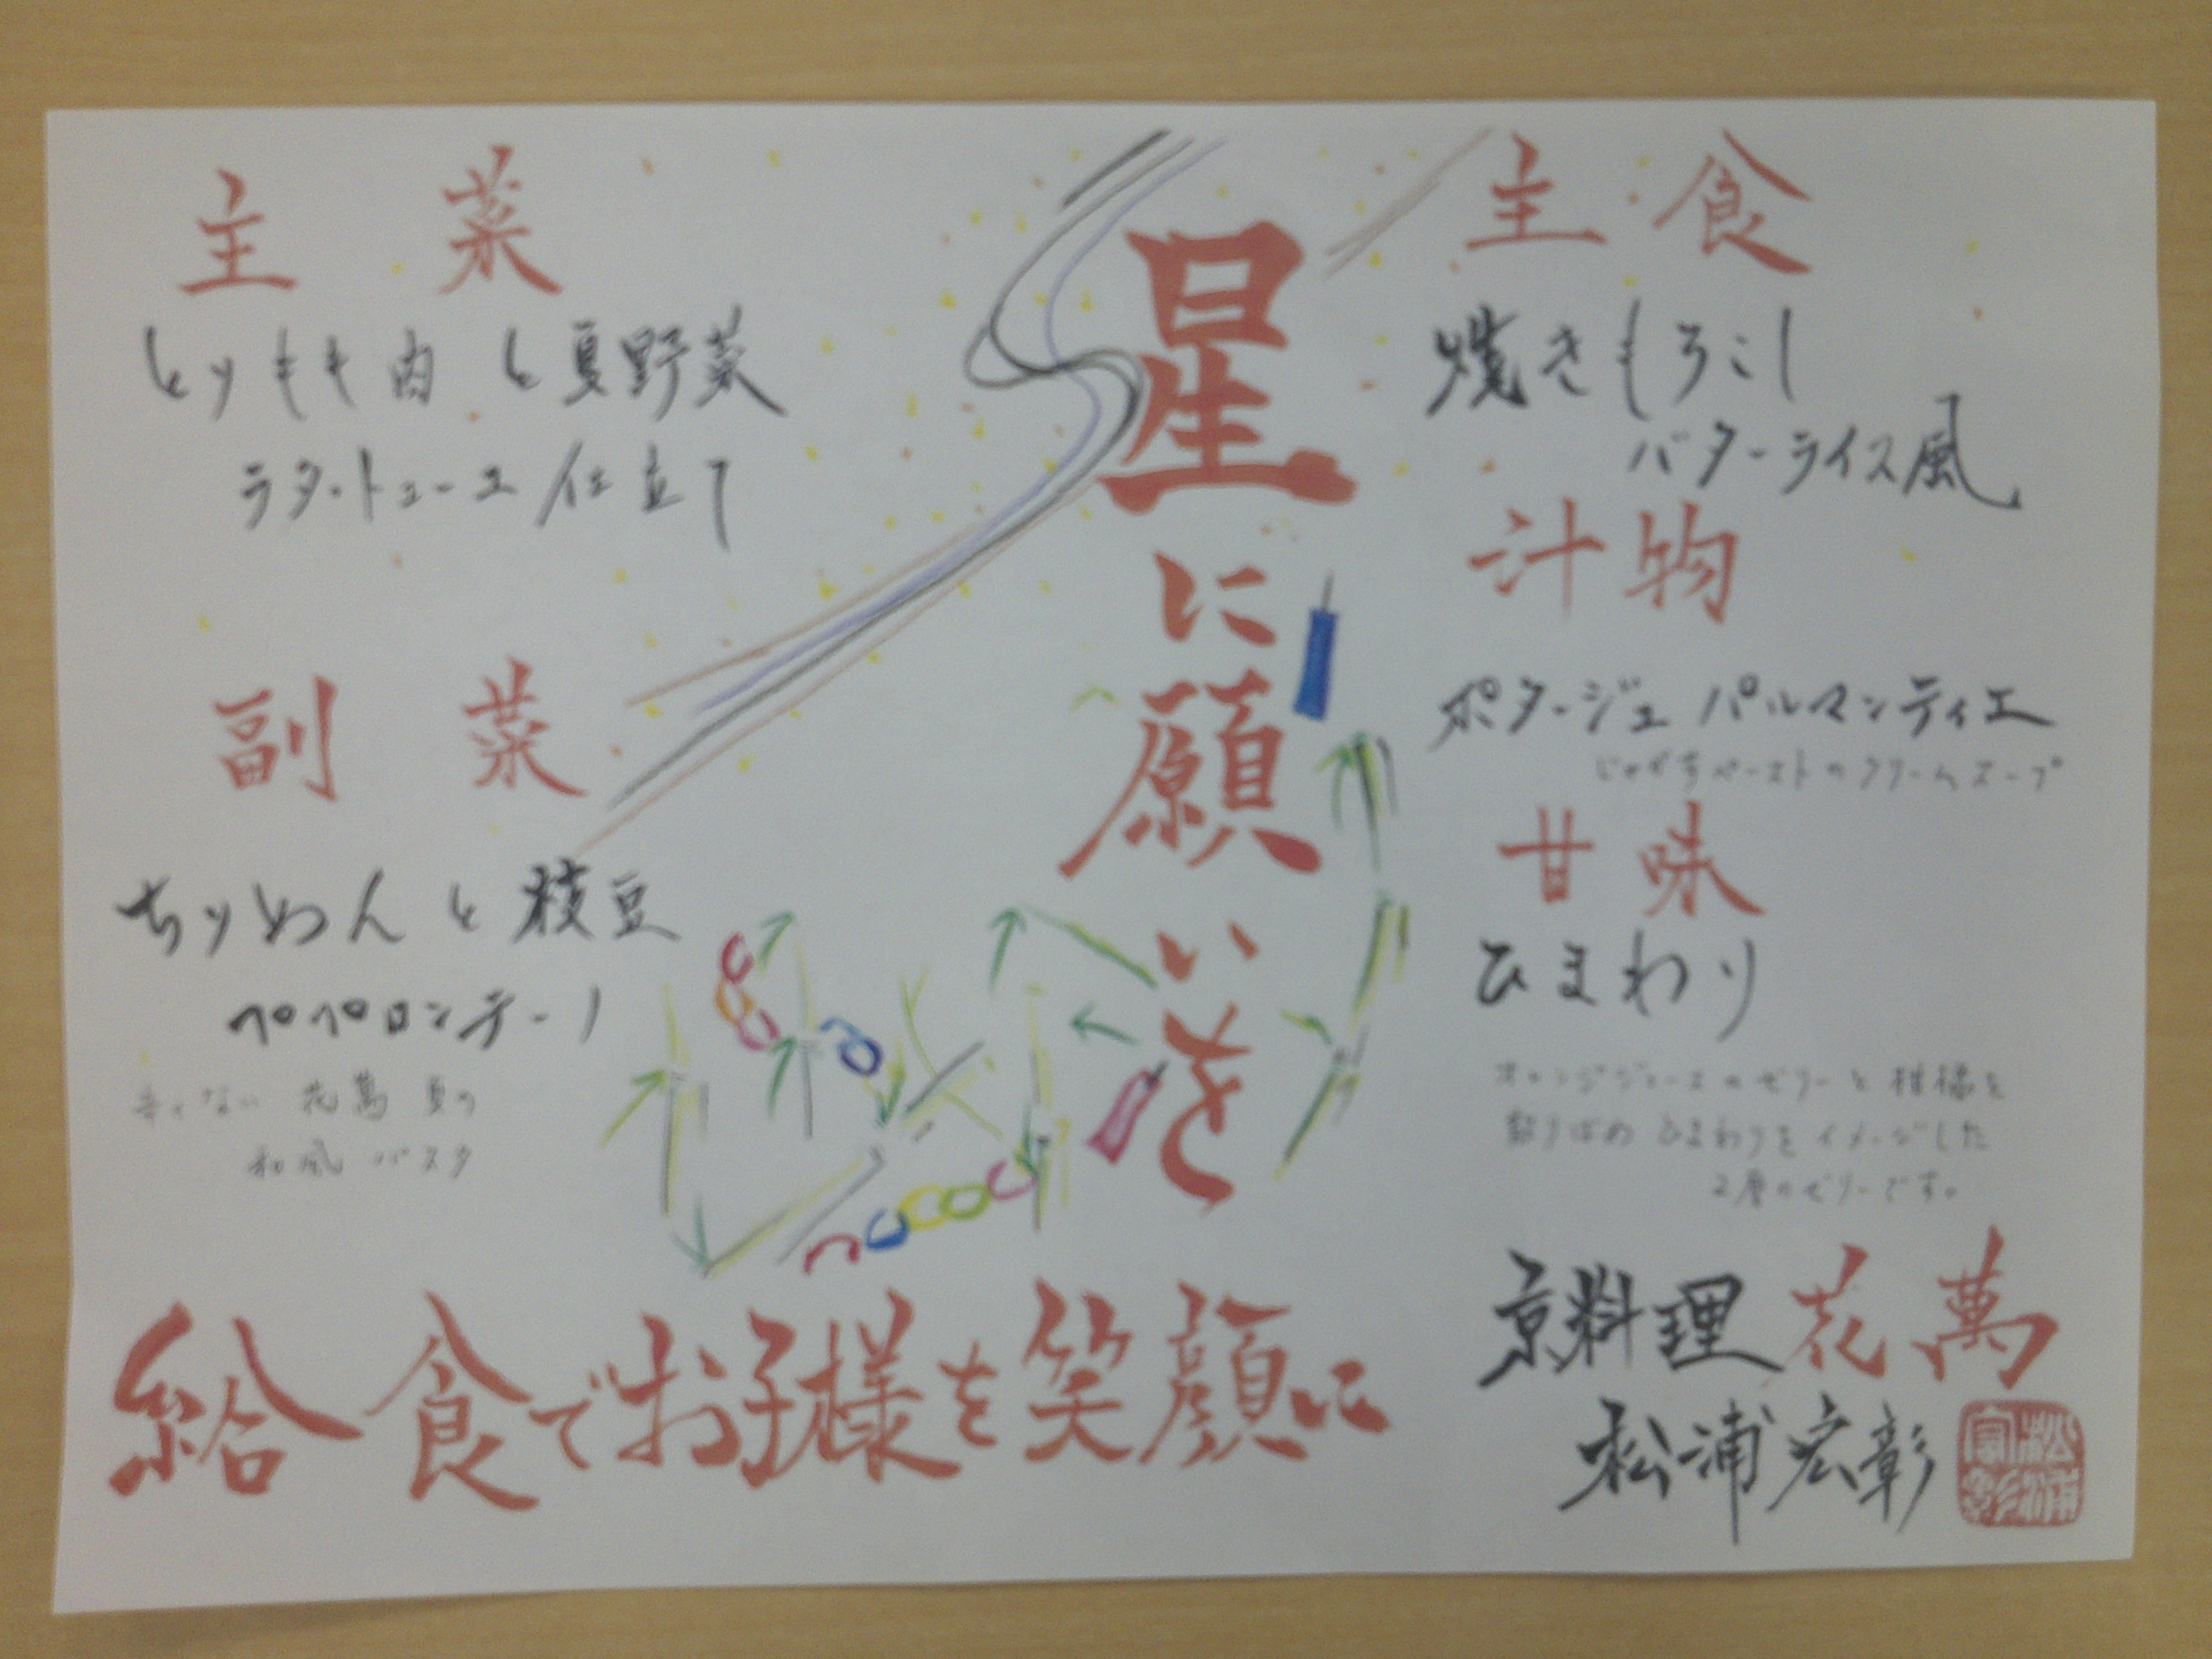 主食
焼きもろこし
バターライス風
汁物
ポタージュ パルマンティエ
じゃがいもペーストのクリームスープ
甘味
ひまわり
オレンジジュースのゼリーと柑橘を
散りばめ ひまわりをイメージした
2層のゼリーです。
星に願いを
主菜
とりもも肉と夏野菜
ラタ・トューユ仕立て
副菜
ちりめんと枝豆
ペペロンチーノ
花萬 夏の
和風パスタ
給食でお子様を笑顔に
京料理 花萬
松浦宏彰